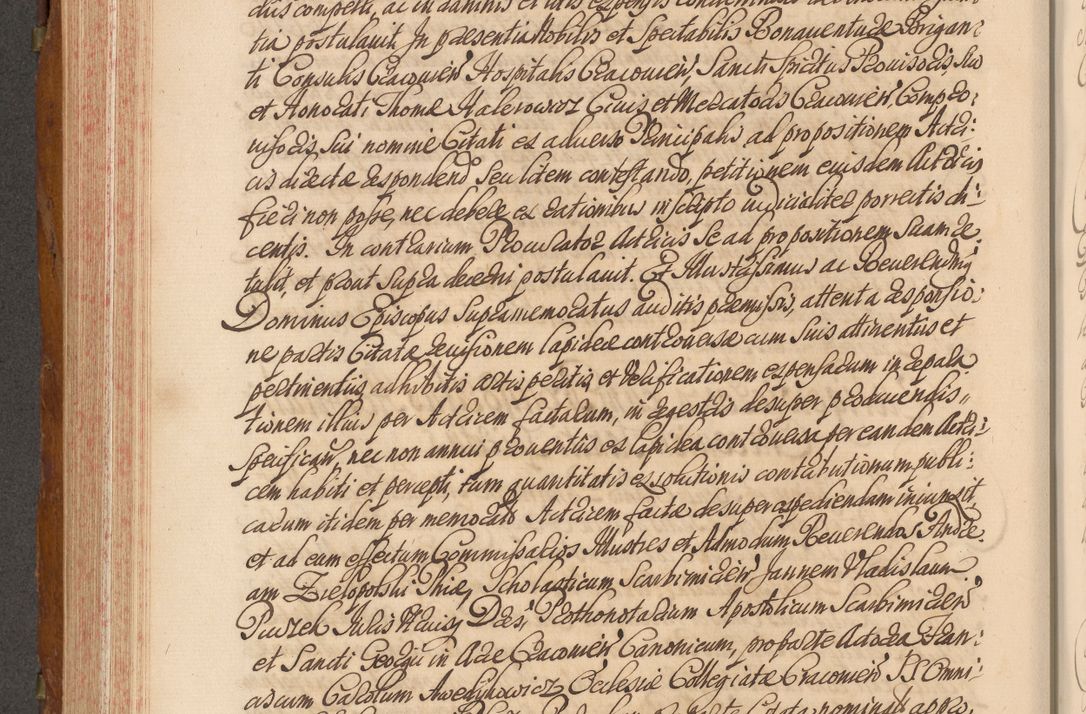 tia postulavit. In praesentia Nobilis et Spectabilis Bonaventurae Brigan:
ti Consulis Cracovien' Hospitalis Cracovien' Sancti Spiritus Provisoris, suo
et Honorati Thomae Halerowicz Civis et Mercatoris Cracovien' Compro:
visoris sui nomine Citati ex adverso Principalis ad propositionem Actri:
cis directe respondendo seu litem contestando, petitionem eiusdem Actricis
fieri non posse, nec debere ex rationibus in scripto iudicialiter porrectis di:
centis. In contrarium Procurator Actricis se ad propositionem suam re
tulit, et prout supra decerni postulavit. Et Illustrissimus ac Reverendus
Dominus Episcopus supramemoratus auditis praemissis, attenta responsio:
ne partis Citatae revisionem lapideae controversae cum suis attinentiis et
pertinentiis, adhibitis artis peritis, et verificationem expensarum in repara
tionem illius per Actricem factarum, in regestris desuper producendis
specificar', nec non annui proventus ex lapidea controversa per eandem Actri:
cem habiti et percepti, tum quantitatis exsolutionis contributionum publi:
carum itidem per memorata Actricem factae desuper expediendam iniunxit
et ad eum effectum Commissarios Illustres et Admodum Reverendos Andre
am Zielopolski Phiae, Scholasticum Scarbimirien' Jannem Vladislaum
Puzzel Iuris Utriusq Drem, Prothonotarium Apostolicum Scarbimirien'
et Sancti Georgii in Arce Cracovien' Canonicum, pro parte Actorea Fran:
ciscum Carolum Awedykowicz Ecclesiae Collegiatae Cracovien' SS. Omni: